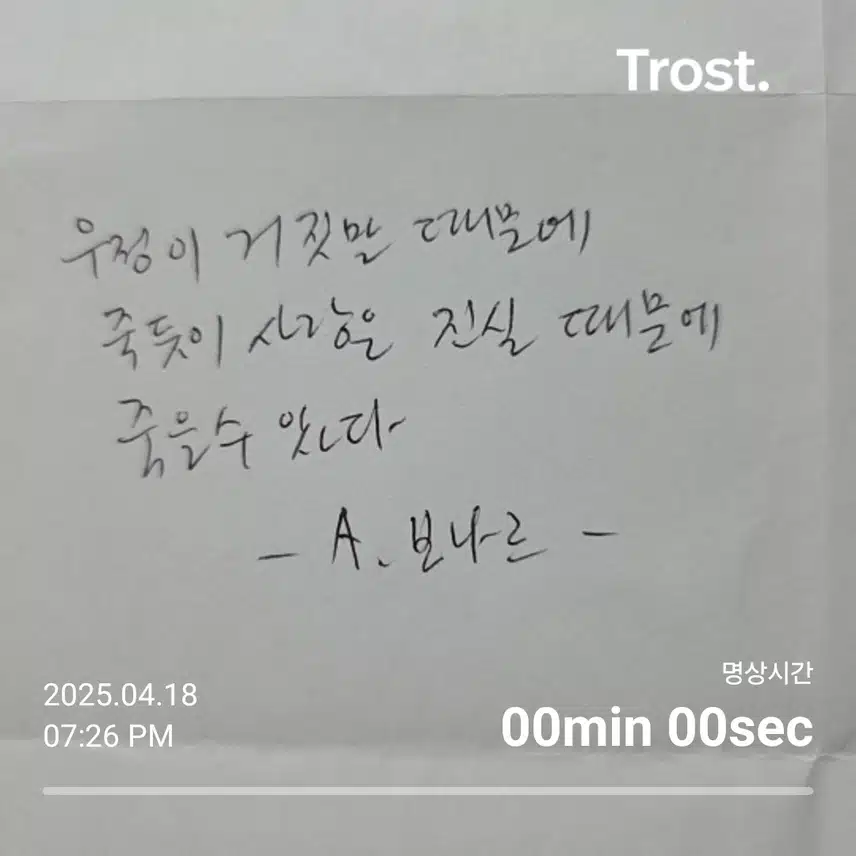 Trost.
우정이 거짓말 때문에
죽듯이 사랑은 진실 때문에
죽을수 있다
- A. 보나르 -
명상시간
2025.04.18
00min 00sec
07:26 PM